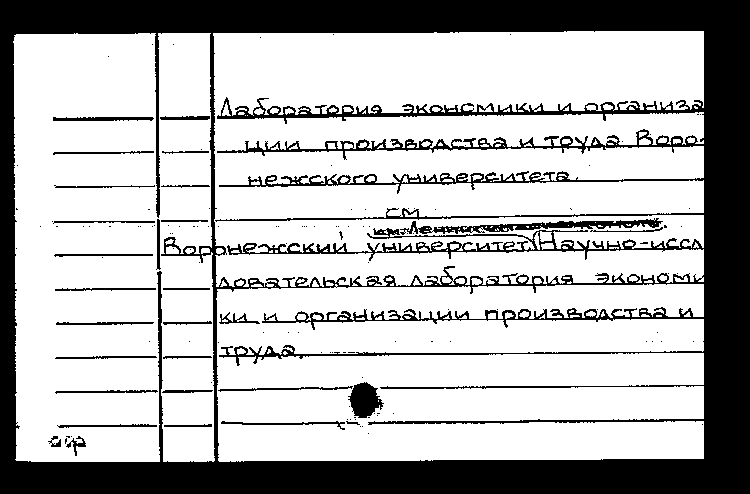 Лаборатория экономики и организа
ции производства и труда Воро-
нежского университета.
см.
Воронежский университет. Научно-иссл
довательская лаборатория экономи
ки и организации производства и
труда.